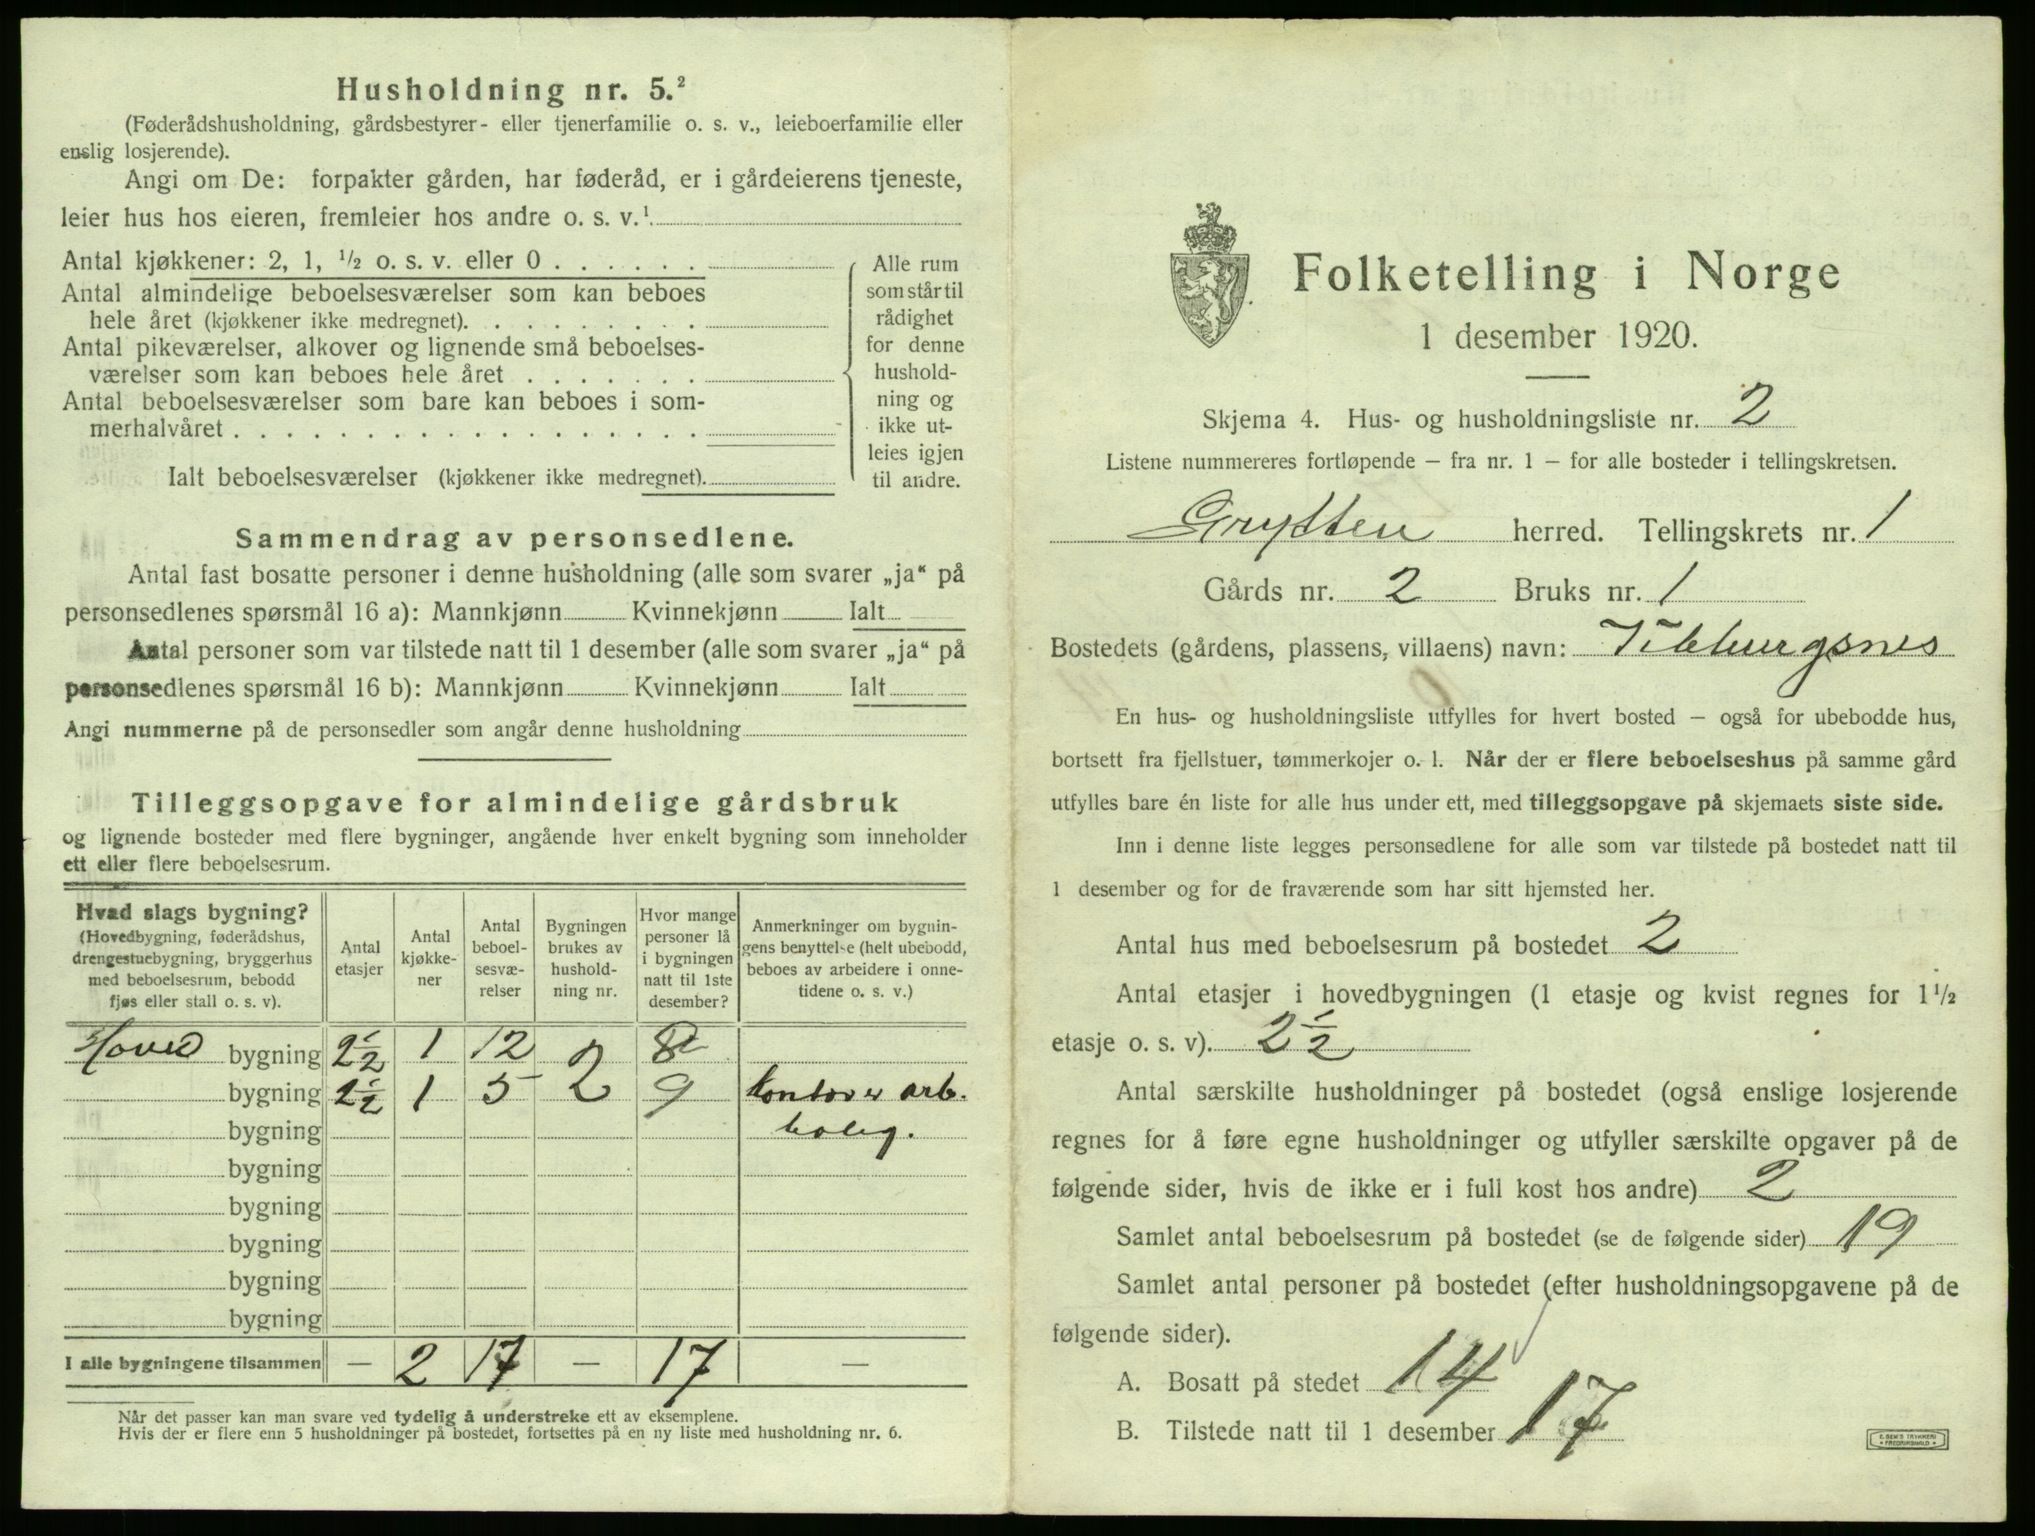 Husholdning nr. 5.²
(Føderådshusholdning, gårdsbestyrer- eller tjenerfamilie o. s. v., leieboerfamilie eller
enslig losjerende).
Angi om De: forpakter gården, har føderåd, er i gårdeierens tjeneste,
leier hus hos eieren, fremleier hos andre o. s. v.¹
Antal kjøkkener: 2, 1, ½ o. s. v. eller 0 . . . . . .
Antal almindelige beboelsesværelser som kan beboes
hele året (kjøkkener ikke medregnet). . . . . . . . . .
Antal pikeværelser, alkover og lignende små beboelses-
værelser som kan beboes hele året . . . . . . .
Antal beboelsesværelser som bare kan beboes i som-
merhalvåret . . . . . . . . . . . . . . . . . .
Ialt beboelsesværelser (kjøkkener ikke medregnet).
Alle rum
som står til
rådighet
for denne
hushold-
ning og
ikke ut-
leies igjen
til andre.
Sammendrag av personsedlene.
Antal fast bosatte personer i denne husholdning (alle som svarer „ja“ på
personsedlenes spørsmål 16 a): Mannkjønn Kvinnekjønn Ialt
Antal personer som var tilstede natt til 1 desember (alle som svarer „ja“ på
personsedlenes spørsmål 16 b): Mannkjønn Kvinnekjønn Ialt
Angi nummerne på de personsedler som angår denne husholdning
Tilleggsopgave for almindelige gårdsbruk
og lignende bosteder med flere bygninger, angående hver enkelt bygning som inneholder
ett eller flere beboelsesrum.
Hvad slags bygning?
(Hovedbygning, føderådshus,
drengestuebygning, bryggerhus
med beboelsesrum, bebodd
fjøs eller stall o. s. v).
Antal
etasjer
Antal
kjøkke-
ner
Antal
beboel-
sesvæ-
relser
Bygningen
brukes av
hushold-
ning nr.
Hvor mange
personer lå
i bygningen
natt til 1ste
desember?
Anmerkninger om bygnin-
gens benyttelse (helt ubebodd,
beboes av arbeidere i onne-
tidene o. s. v.)
Hoved bygning 2½ 1 12 8
bygning 2½ 1 5 2 9 Kontor er arb.
bygning bolig.
bygning
bygning
bygning
bygning
bygning
I alle bygningene tilsammen — 2 17 — 17 —
Når det passer kan man svare ved tydelig å understreke ett av eksemplene.
Hvis der er flere enn 5 husholdninger på bostedet, fortsettes på en ny liste med husholdning nr. 6.
Folketelling i Norge
1 desember 1920.
Skjema 4. Hus- og husholdningsliste nr. 2
Listene nummereres fortløpende – fra nr. 1 – for alle bosteder i tellingskretsen.
Grytten herred. Tellingskrets nr. 1
Gårds nr. 2 Bruks nr. 1
Bostedets (gårdens, plassens, villaens) navn:
En hus- og husholdningsliste utfylles for hvert bosted – også for ubebodde hus,
bortsett fra fjellstuer, tømmerkojer o. l. Når der er flere beboelseshus på samme gård
utfylles bare én liste for alle hus under ett, med tilleggsopgave på skjemaets siste side.
Inn i denne liste legges personsedlene for alle som var tilstede på bostedet natt til
1 desember og for de fraværende som har sitt hjemsted her.
Antal hus med beboelsesrum på bostedet 2
Antal etasjer i hovedbygningen (1 etasje og kvist regnes for 1½
etasje o. s. v). 2½
Antal særskilte husholdninger på bostedet (også enslige losjerende
regnes for å føre egne husholdninger og utfyller særskilte opgaver på de
følgende sider, hvis de ikke er i full kost hos andre) 2
Samlet antal beboelsesrum på bostedet (se de følgende sider) 19
Samlet antal personer på bostedet (efter husholdningsopgavene på de
følgende sider).
A. Bosatt på stedet 14
B. Tilstede natt til 1 desember 17